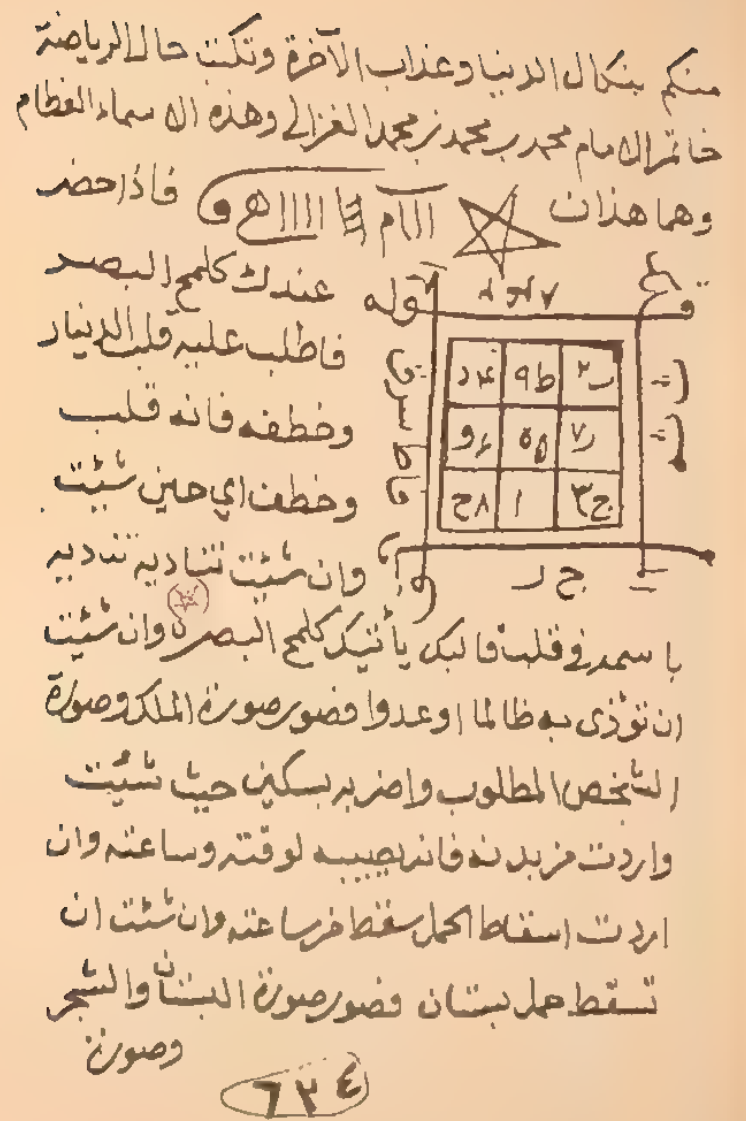 منكم بنكال الدنيا وعذاب الآخرة وتكتب حال الرياضة
خاتم الامام محمد بن محمد بن محمد الغزالي وهذه الاسماء العظام
وهما هذان فاذا حضر
عندك كلمح البصر
فاطلب عليه قلب الدينار
وخطفه فانه قلب
وخطف اي حين شيت
وان شيت تناديه تناديه
با سمه في قلب فالبك يأتيك كلمح البصر وان شيت
ان توذى به ظالما اوعدوا فصور صورة الملك وصورة
الشخص المطلوب واضربه بسكين حيث شيت
واردت من بدنه فانه يصيبه لوقته وساعته وان
اردت اسقاط الحمل سقط من ساعته وان شئت ان
تسقط حمل بستان فصور صورة البستان والشجر
وصورة
ب٢ ط٩ د٤
ز٧ ه٥ و٦
ج٣ ا ح٨
٦٣٤